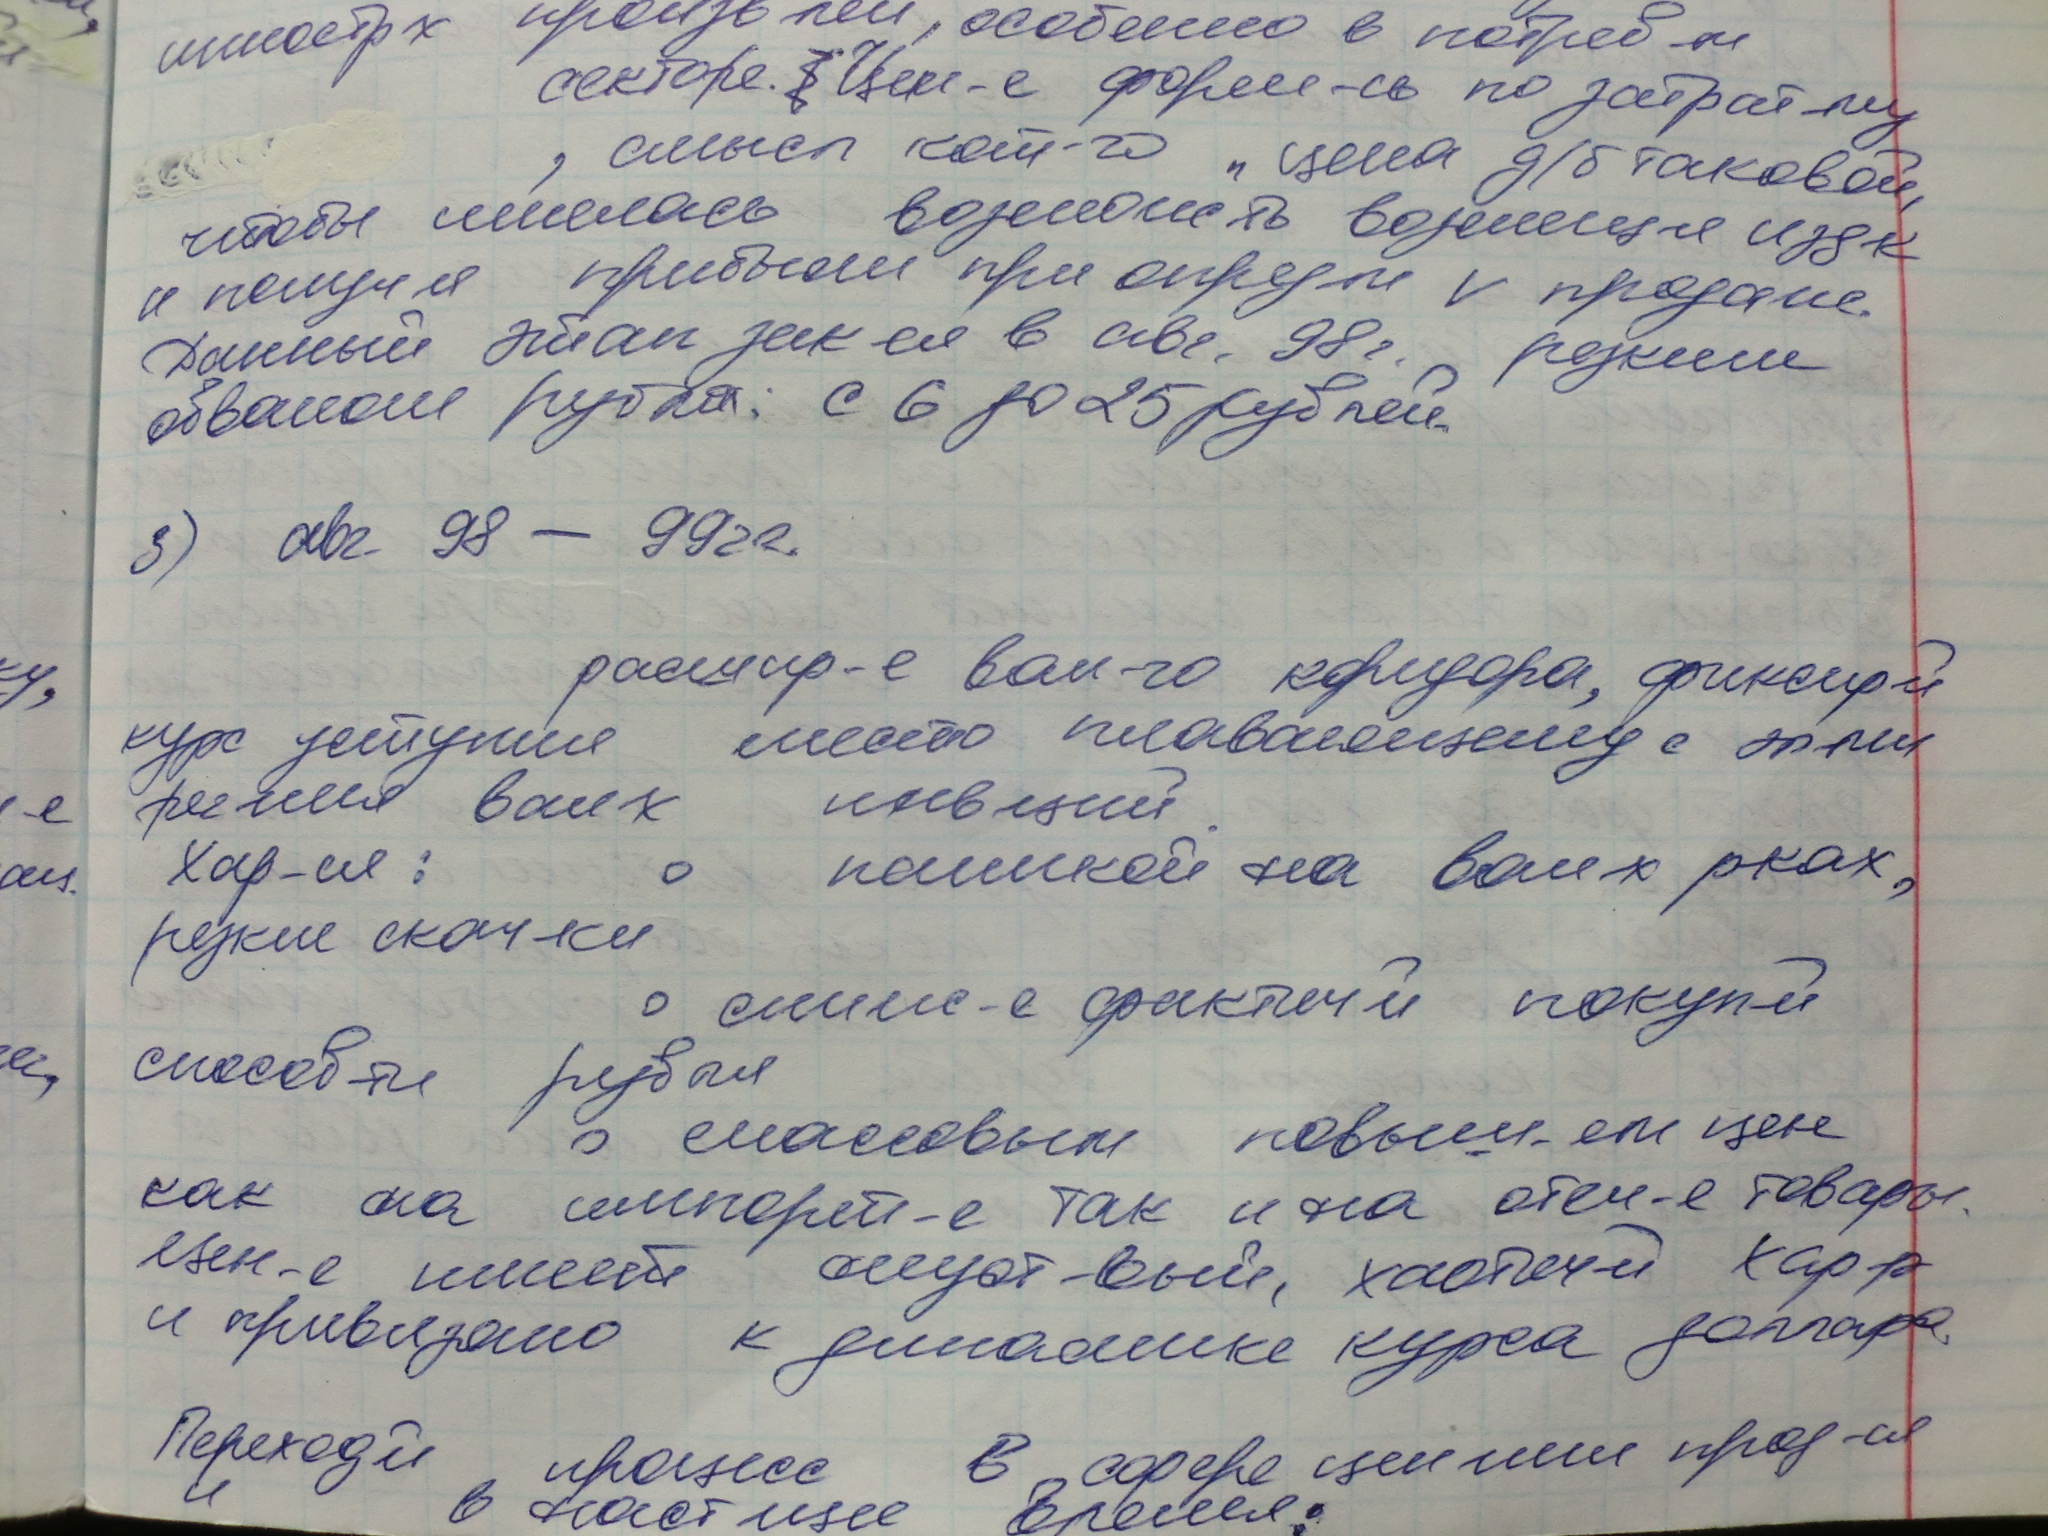 иностр х произв лей, особенно в потреб м
секторе. Цен-е форм-сь по затрат-му
, смысл кот-го „ цена д/б таковой,
чтобы имелась возможность возмещ я изд к
и получ я прибыли при опред м V продаж.
Данный этап зак ся в авг. 98 г. резким
обвалом рубля: с 6 до 25 рублей.
3) авг 98 — 99 г г.
расшир-е вал-го коридора, фиксир й
курс уступил место плавающему с эл ми
режима вал х инв ций.
Хар-ся: о паникой на вал х рках,
резкие скачки
о сниж-е фактич й покуп-й
способ ти рубля
о массовым повыш-ем цен
как на импорт-е так и на отеч-е товары.
Цен-е имеет хаотич й хар-р
и привязано к динамике курса доллара.
Переход й процесс в сфере цен ния прод-ся
и в наст щее время: